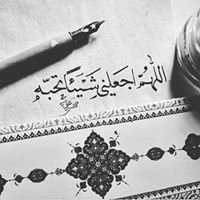 اللهُمَّ اجعلني شَيئاً تحبّه